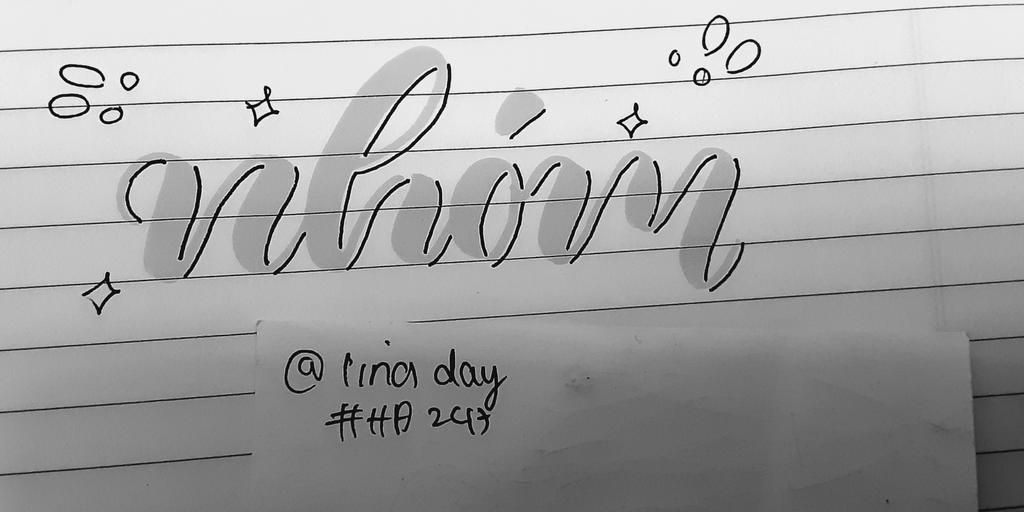 nhóm
@ rina day
#HA 247